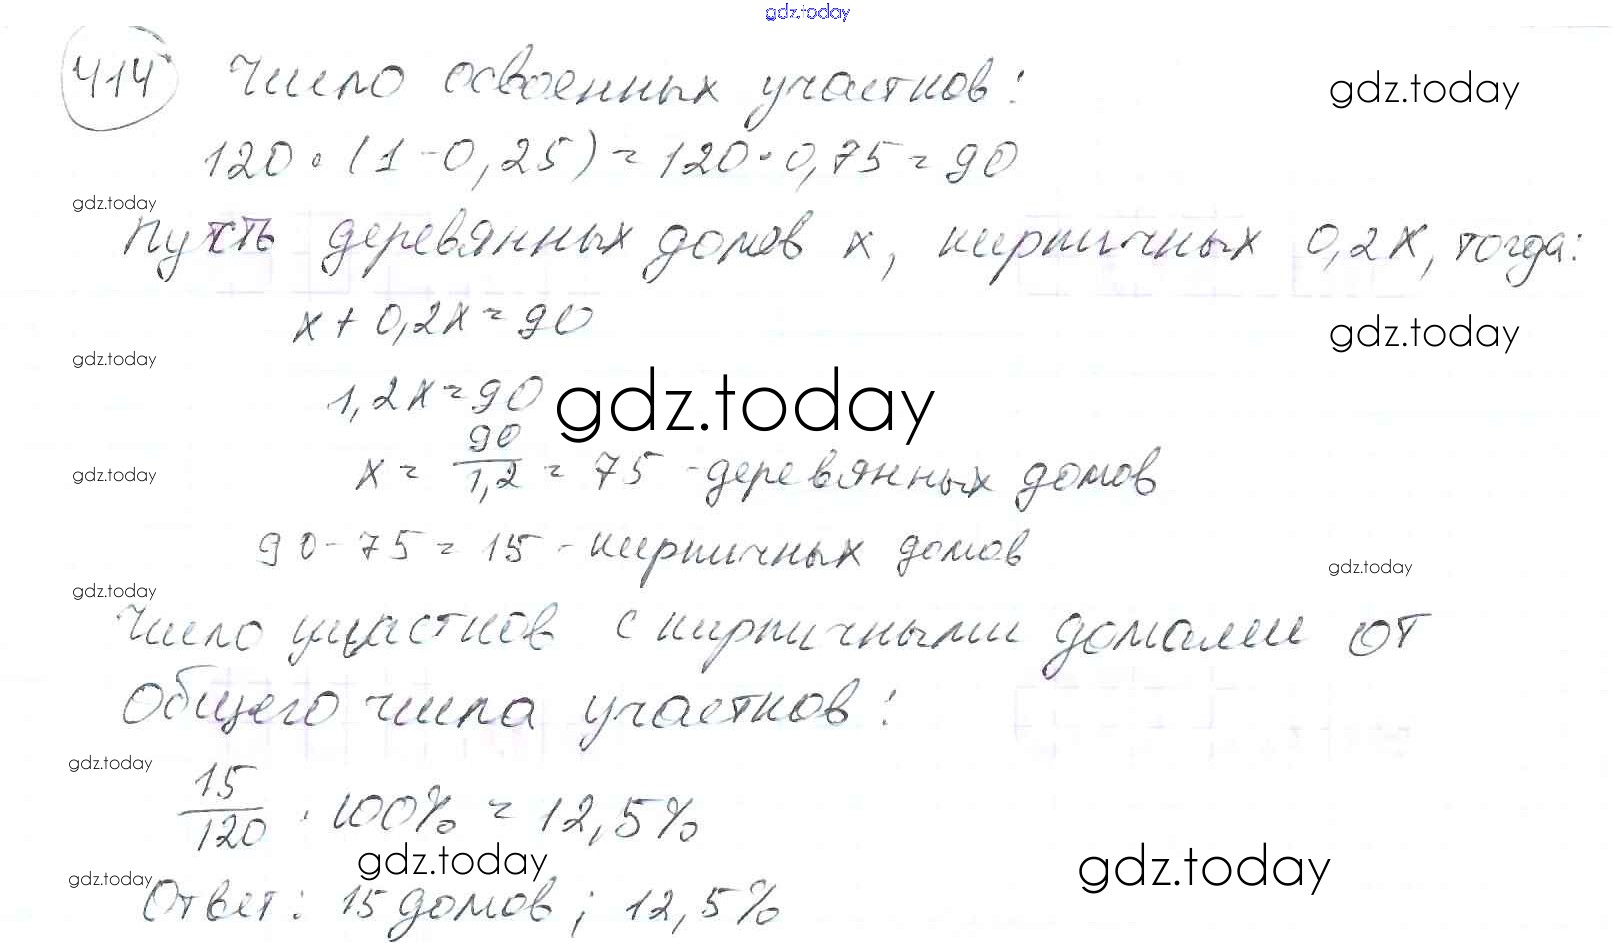 gdz.today
414 Число освоенных участков:
gdz.today
120 · (1 - 0,25) = 120 · 0,75 = 90
gdz.today
Пусть деревянных домов x, кирпичных 0,2x, тогда:
x + 0,2x = 90
gdz.today
gdz.today
1,2x = 90
gdz.today
x = 90/1,2 = 75 - деревянных домов
gdz.today
90 - 75 = 15 - кирпичных домов
gdz.today
gdz.today
Число участков с кирпичными домами от
общего числа участков:
gdz.today
15/120 · 100% = 12,5%
gdz.today
gdz.today
gdz.today
Ответ: 15 домов; 12,5%